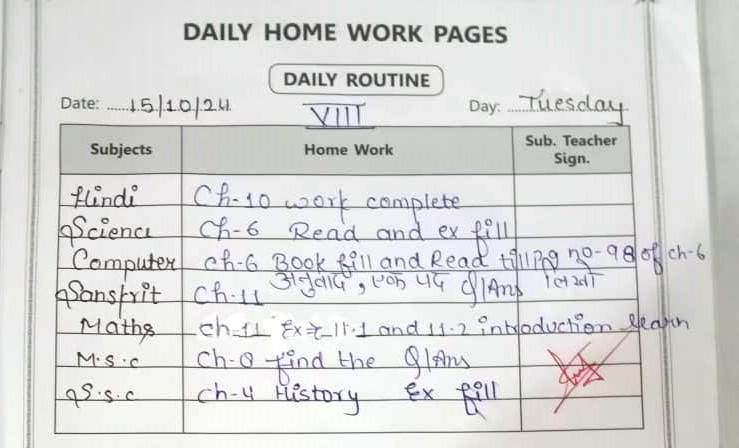 DAILY HOME WORK PAGES
DAILY ROUTINE
Date: 15/10/24 Day: Tuesday
VIII
Subjects Home Work Sub. Teacher Sign.
Hindi Ch-10 work complete
Science Ch-6 Read and ex fill
Computer ch-6 Book fill and Read till pg no-98 of ch-6
Sanskrit Ch-11 अनुवाद, एक पद Q/Ans लिखो
Maths ch-11 Ex 11.1 and 11.2 introduction learn
M.S.C Ch-8 find the Q/Ans
S.S.C Ch-4 History Ex fill